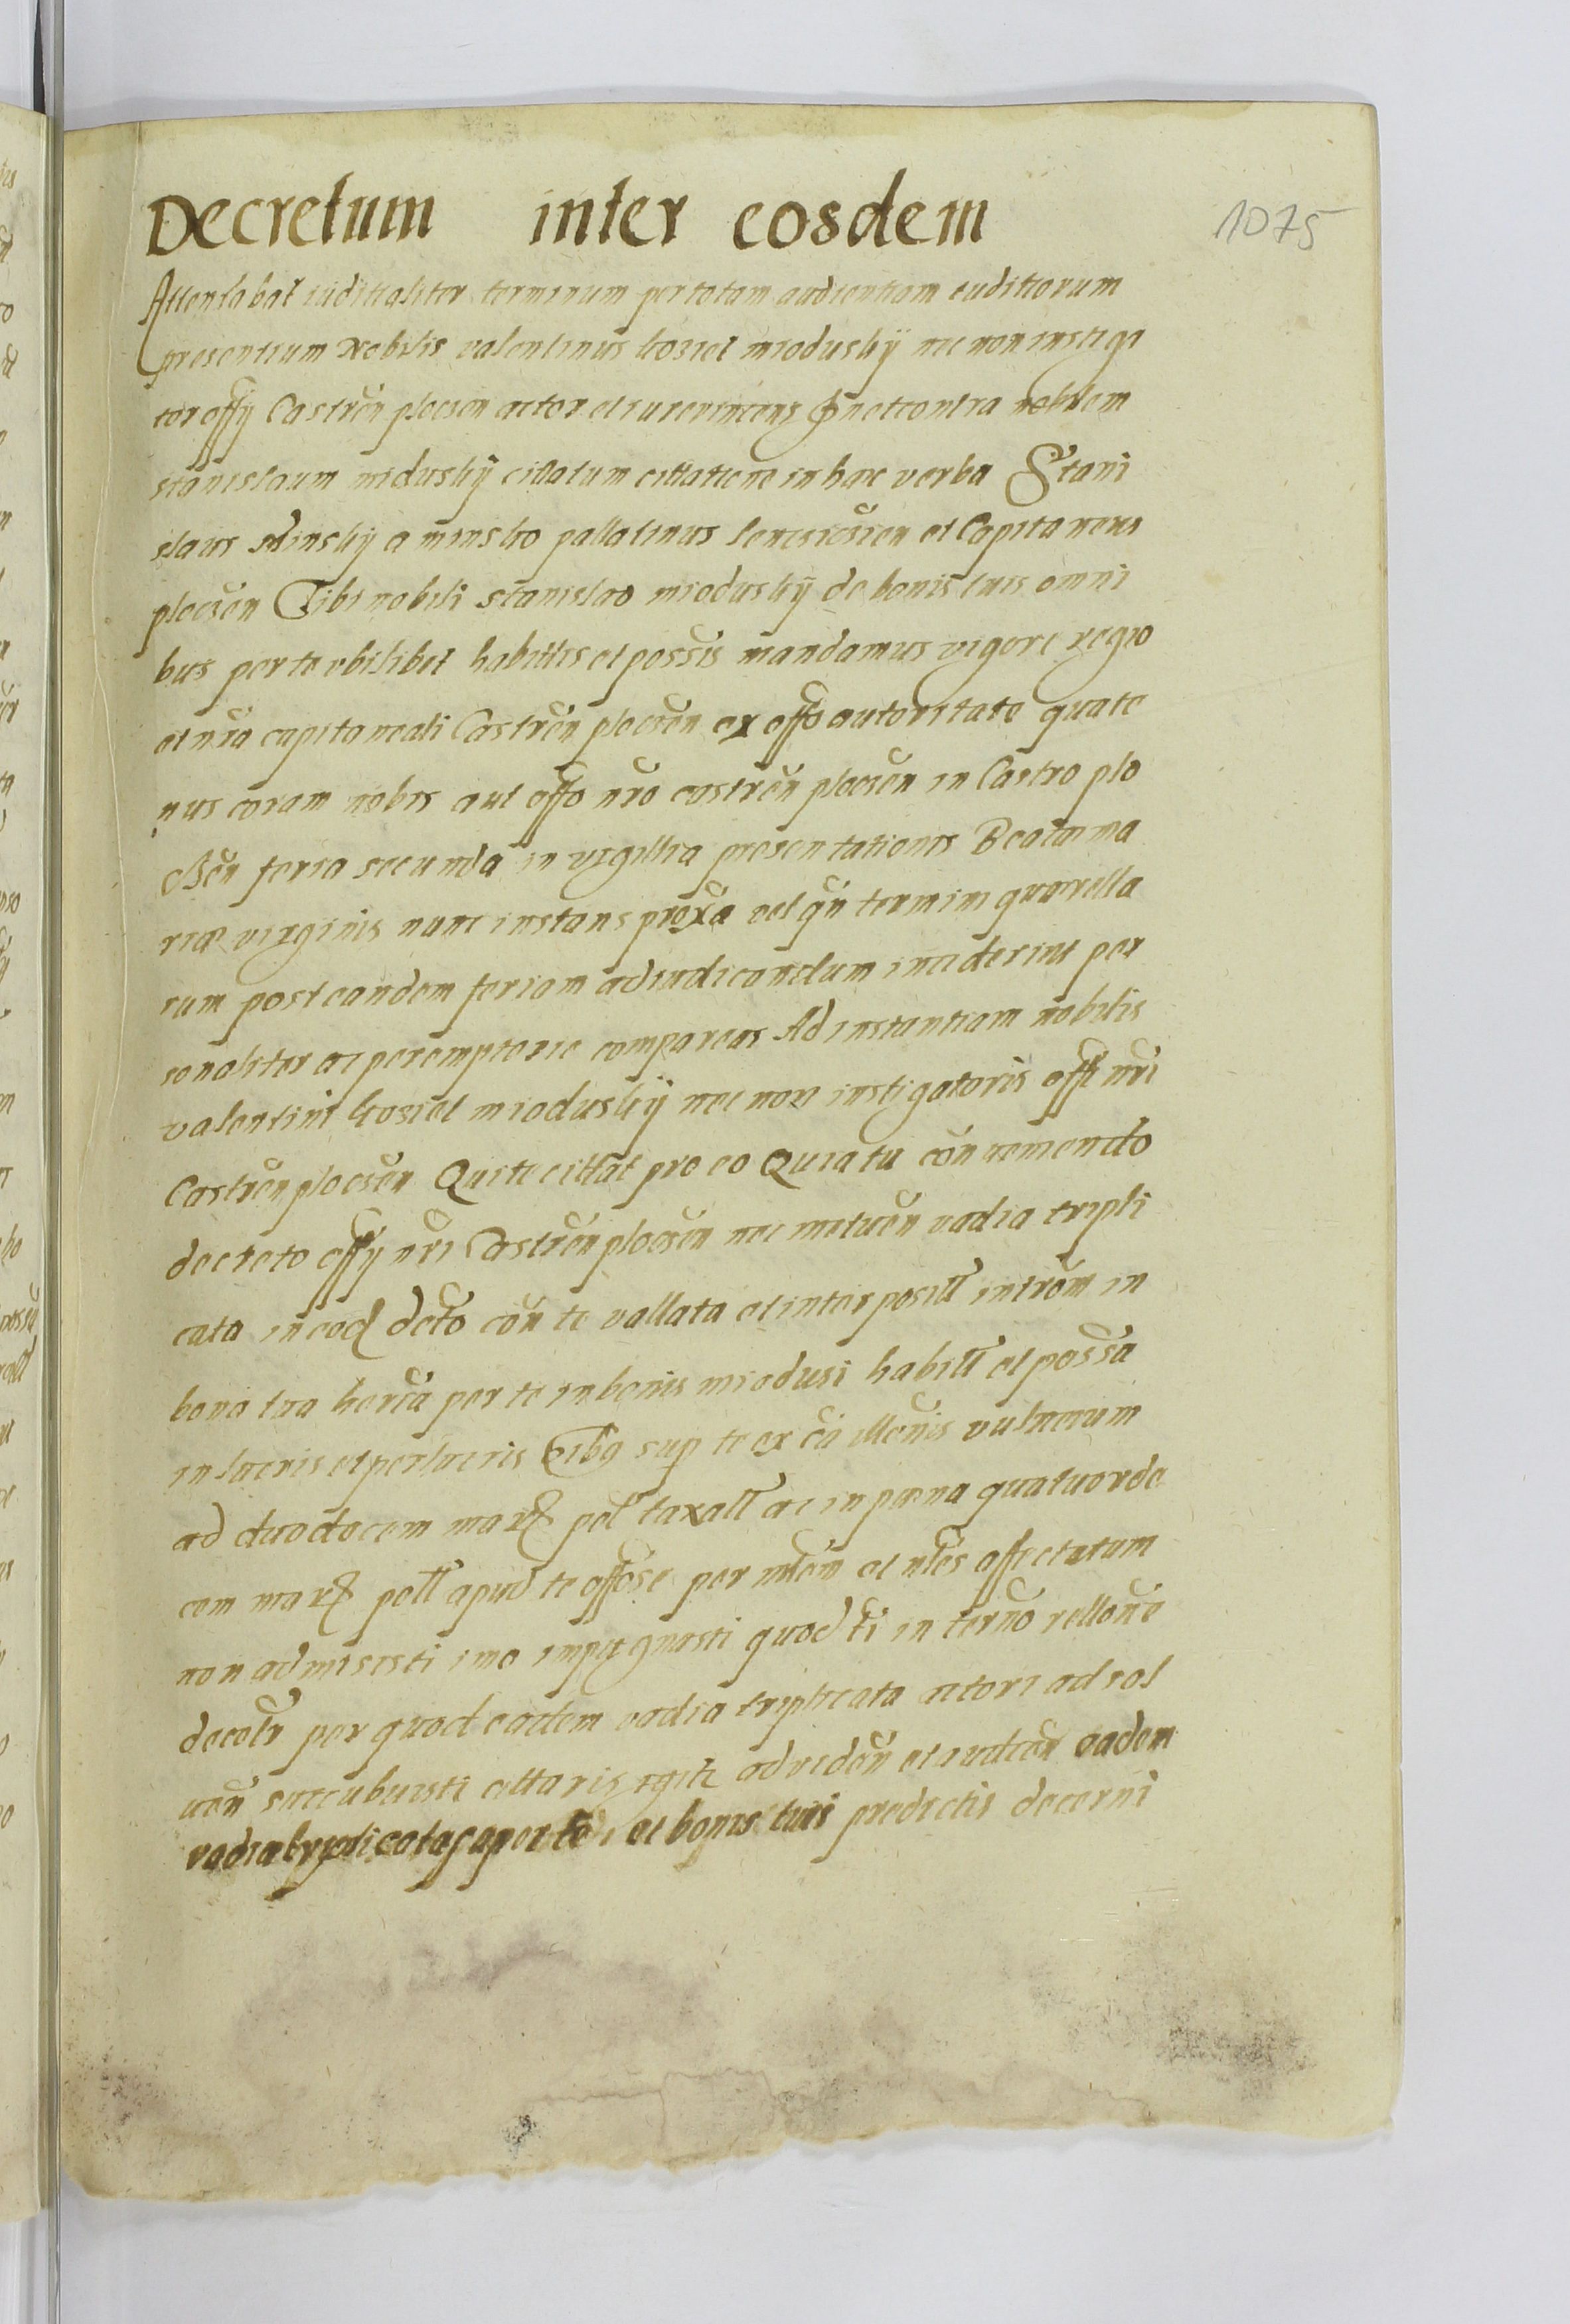 Decretum inter eosdem
1075
Attentabat iuditialiter terminum per totam audientiam iuditiorum
presentium Nobilis valentinus koziel mioduskÿ nec non instiga
tor offÿ Castren̄ plocsen actor et iurevincens in et contra nobilem
stanislaum miduskÿ cittatum cittatione in hæc verba Stani
slaus Minskÿ a minsko pallatinus Lencicien et Capitaneus
plocsen Tibi nobili stanislao mioduskÿ de bonis tuis omni
bus per te ubilibet habittis et possis mandamus vigore regio
et nr̄a capitaneali Castren̄ plocsen̄ ex offo autoritate quate
nus coram nobis aut offo nr̄o castren̄ plocsen̄ in Castro plo
csen̄ feria secunda in vigillia presentationis Beatæ ma
riæ virginis nunc instans proxa vel qn̄ termini quærella
rum post eandem feriam adiudicandum inciderint per
sonaliter ac peremptorie compareas Ad instantiam nobilis
valentini kosiel mioduskÿ nec non instigatoris offi nr̄i
Castren̄ plocsen̄ Qui te cittat pro eo Quia tu con̄ veniendo
decreto offÿ nr̄i Castren̄ plocsen̄ nec metuen̄ vadia tripli
cata in eod decto con̄ te vallata et interposit introm̄ in
bona tua her̄a per te in bonis miodusi habitt et possā
in lucris et perlucris Tibq sup te ex cā illon̄is vulnerum
ad duodecem marz pol taxatt ac in pæna quatuorde
cem marz poll apud te offose per mlem̄ et nles affectatum
non admisisti imo impugnasti quod ti in terno rellone
decotr per quod eadem vadia triplicata actori ad sol
uen̄ succubuisti cittaris igitr ad viden̄ et audien̄ eadem
vadia triplicata super te et bonis tuis predictis decerni